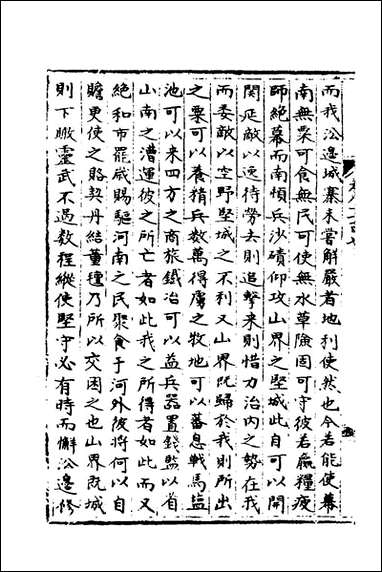 而我沿邊城寨未嘗解嚴者地利使然也今若能使幕
南無粟可食無民可使無水草險固可守彼若羸糧疲
師絶幕而南頓兵沙磧仰攻山界之堅城此自可以開
關延敵以逸待勞去則追擊来則惜力治内之勢在我
而委敵以空野堅城之不利又山界既歸於我則所出
之粟可以養精兵數萬得虜之牧地可以蕃息戰馬塩
池可以来四方之商旅鐵冶可以益兵器置錢監以省
山南之漕運彼之所亡者如此我之所得者如此而又
絶和市罷歲賜驅河南之民聚食于河外彼將何以自
贍更使之賂契丹結董氊乃所以交困之也山界既城
則下瞰靈武不過數程縱使堅守必有時而懈沿邊修